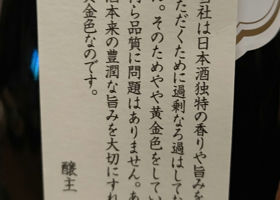 当社は日本酒独特の香りや旨みを
ただくために過剰なろ過はして
。そのためやや黄金色をしてい
ら品質に問題はありません。あ
酒本来の豊潤な旨みを大切にすれ
黄金色なのです。
醸主